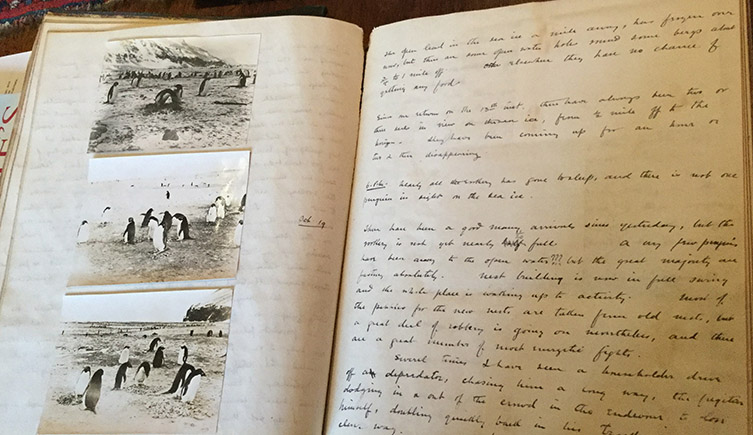 Oct. 19
the open lead in the sea ice a mile away, has frozen over
but there are some open water holes round some bergs about
¾ to 1 mile off elsewhere they had no chance of
getting any food.
Since my return on the 13th inst. there have always been two or
three seals in view on the sea ice, from ½ mile off to the
They have been coming up for an hour or
two & then disappearing
6. P.m. Nearly all the rookery has gone to sleep, and there is not one
penguin in sight on the sea ice.
There have been a good many arrivals since yesterday, but the
rookery is not yet nearly half full. A very few penguins
have been away to the open water??? but the great majority are
fasting absolutely. Nest building is now in full swing
and the whole place is waking up to activity. Most of
the pebbles for the new nests are taken from old nests, but
a great deal of robbery is going on nonetheless, and there
are a great number of most energetic fights.
Several times I have seen a householder drive
off a depredator, chasing him a long way, the fugitive
dodging in & out of the crowd in the endeavour to lose
himself, doubling quickly back in his
way.